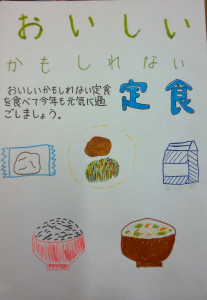 おいしい
かもしれない
定食
おいしいかもしれない定食
を食べて今年も元気に過
ごしましょう。